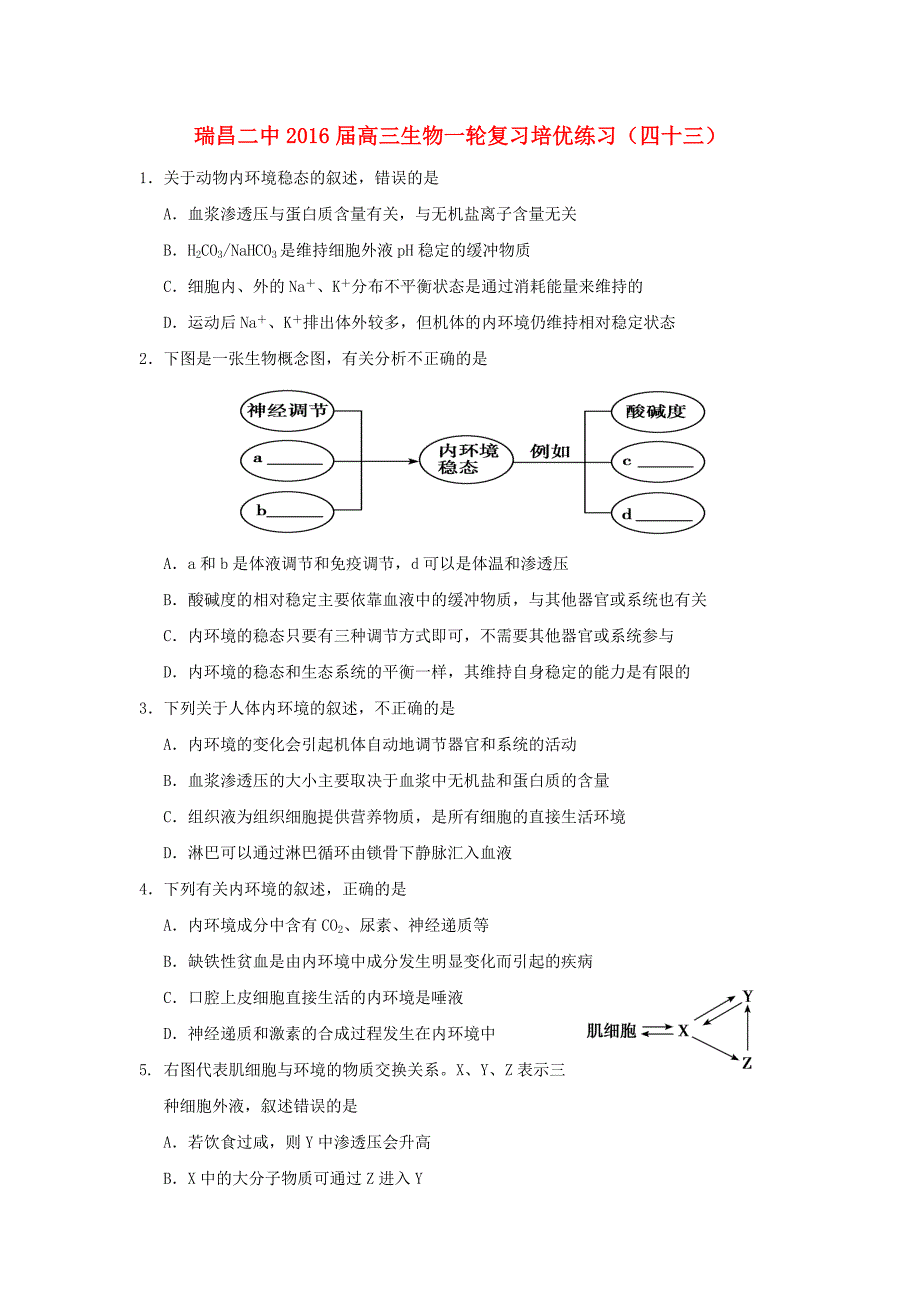 瑞昌二中 2016 届高三生物一轮复习培优练习（四十三）
1．关于动物内环境稳态的叙述，错误的是
A．血浆渗透压与蛋白质含量有关，与无机盐离子含量无关
B．H₂CO₃/NaHCO₃是维持细胞外液 pH 稳定的缓冲物质
C．细胞内、外的 Na⁺、K⁺分布不平衡状态是通过消耗能量来维持的
D．运动后 Na⁺、K⁺排出体外较多，但机体的内环境仍维持相对稳定状态
2．下图是一张生物概念图，有关分析不正确的是
神经调节
a ______
b______
内环境
稳态
例如
酸碱度
c ______
d ______
A．a 和 b 是体液调节和免疫调节，d 可以是体温和渗透压
B．酸碱度的相对稳定主要依靠血液中的缓冲物质，与其他器官或系统也有关
C．内环境的稳态只要有三种调节方式即可，不需要其他器官或系统参与
D．内环境的稳态和生态系统的平衡一样，其维持自身稳定的能力是有限的
3．下列关于人体内环境的叙述，不正确的是
A．内环境的变化会引起机体自动地调节器官和系统的活动
B．血浆渗透压的大小主要取决于血浆中无机盐和蛋白质的含量
C．组织液为组织细胞提供营养物质，是所有细胞的直接生活环境
D．淋巴可以通过淋巴循环由锁骨下静脉汇入血液
4．下列有关内环境的叙述，正确的是
A．内环境成分中含有 CO₂、尿素、神经递质等
B．缺铁性贫血是由内环境中成分发生明显变化而引起的疾病
C．口腔上皮细胞直接生活的内环境是唾液
D．神经递质和激素的合成过程发生在内环境中
肌细胞 X Y Z
5. 右图代表肌细胞与环境的物质交换关系。X、Y、Z 表示三
种细胞外液，叙述错误的是
A．若饮食过咸，则 Y 中渗透压会升高
B．X 中的大分子物质可通过 Z 进入 Y